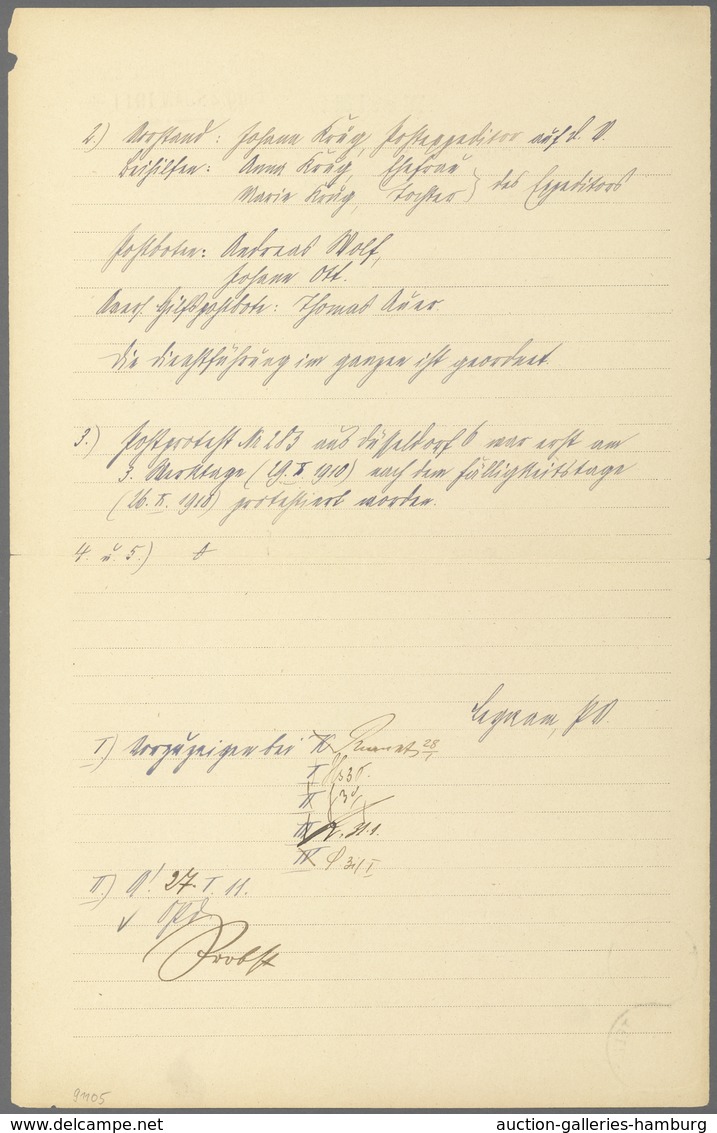 2.) Vorstand: Johann Krug, Postexpeditor auf d. V.
Beihilfen: Anna Krug, Ehefrau
Marie Krug, Tochter } des Expeditors
Postboten: Andreas Wolf,
Johann Ott.
Avers. Hilfspostbote: Thomas Auer.
Die Dienstführung im ganzen ist geordnet.
3.) Postprotest № 283 aus Düsseldorf 6 war erst am
3. Werktage (29. X 1910) nach dem Fälligkeitstage
(26. X. 1910) protestiert worden.
4. u. 5.)
PV.
I.) Vorzuzeigen bei 28/1
I
II
III 31.1.
IV 31/I
II.) 27. I. 11.
Probst
91105
auction-galleries-hamburg